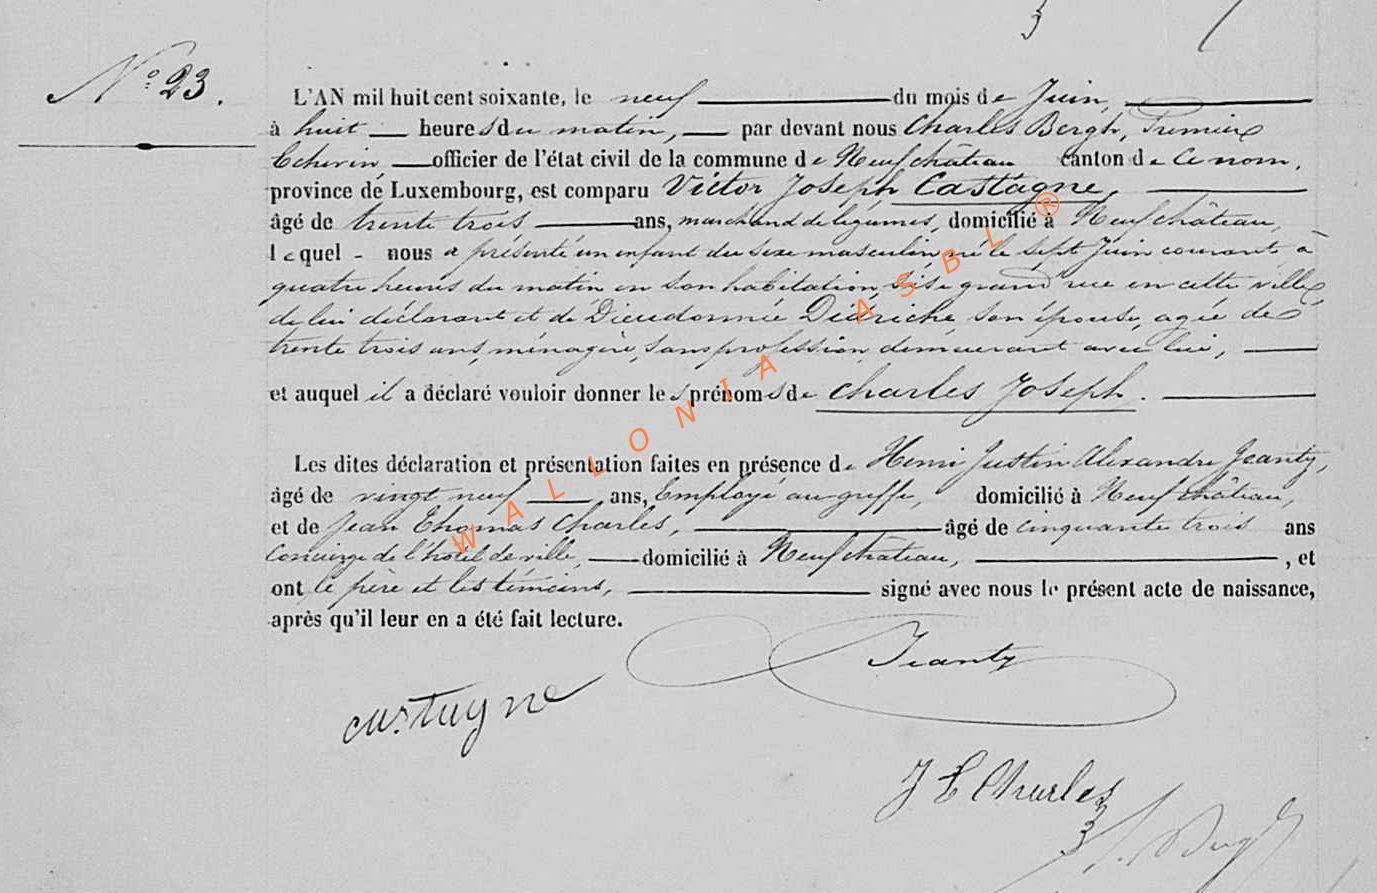 N° 23.
L'AN mil huit cent soixante, le neuf du mois de Juin,
à huit heures du matin, par devant nous Charles Bergh, Premier
Echevin officier de l'état civil de la commune de Neufchâteau canton de Ce nom,
province de Luxembourg, est comparu Victor Joseph Castagne,
âgé de trente trois ans, marchand de légumes, domicilié à Neufchâteau,
lequel nous a présenté un enfant du sexe masculin, né le sept Juin courant à
quatre heures du matin en son habitation, sise grand rue en cette ville,
de lui déclarant et de Dieudonnée Didriche, son épouse, agée de
trente trois ans, ménagère, sans profession, demeurant avec lui,
et auquel il a déclaré vouloir donner les prénoms de Charles Joseph.
Les dites déclaration et présentation faites en présence de Henri Justin Alexandre Jeanty,
âgé de vingt neuf ans, Employé au greffe, domicilié à Neufchâteau,
et de Jean Thomas Charles, âgé de cinquante trois ans
Concierge de l'hôtel de ville, domicilié à Neufchâteau, , et
ont le père et les témoins, signé avec nous le présent acte de naissance,
après qu'il leur en a été fait lecture.
Jeanty
Castagne
J T Charles
WALLONIA ASBL ®